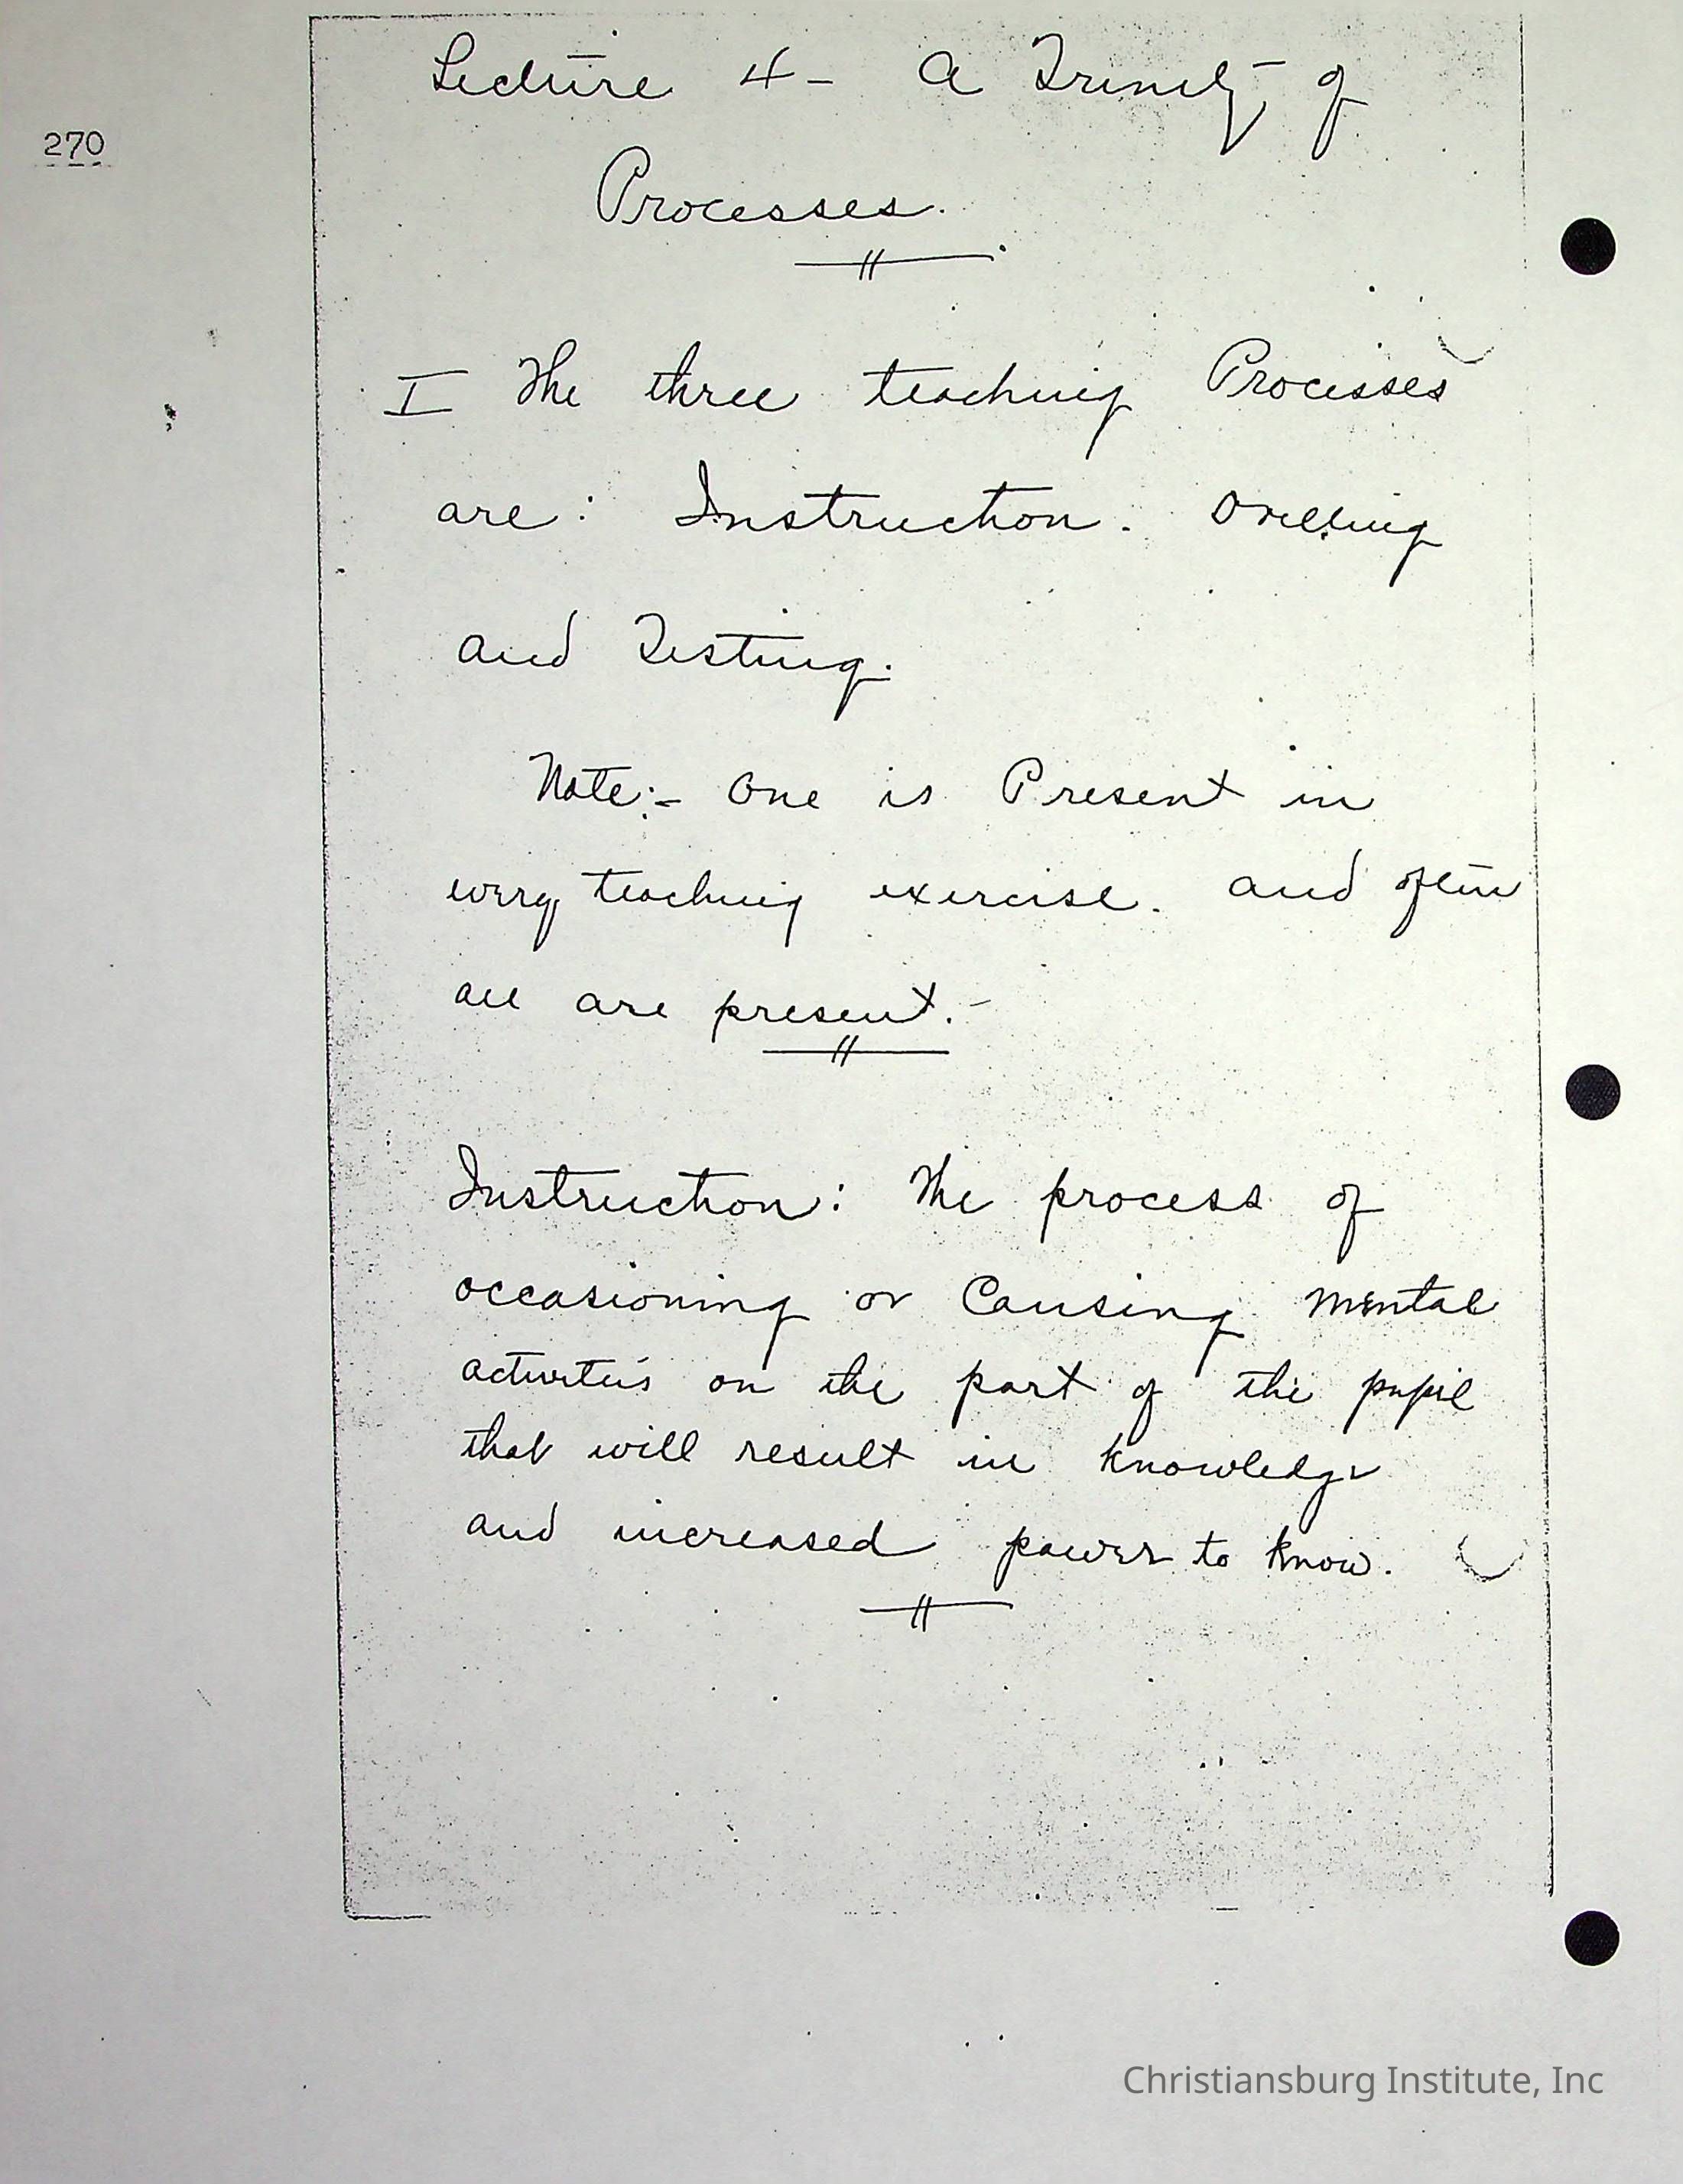 Lecture 4- A Trinity of
270
Processes.
I The three teaching Processes
are: Instruction. Drilling
and Testing.
Note:- One is Present in
every teaching exercise. and often
all are present.-
Instruction: The process of
occasioning or Causing mental
activities on the part of the pupil
that will result in knowledge
and increased power to know.
Christiansburg Institute, Inc